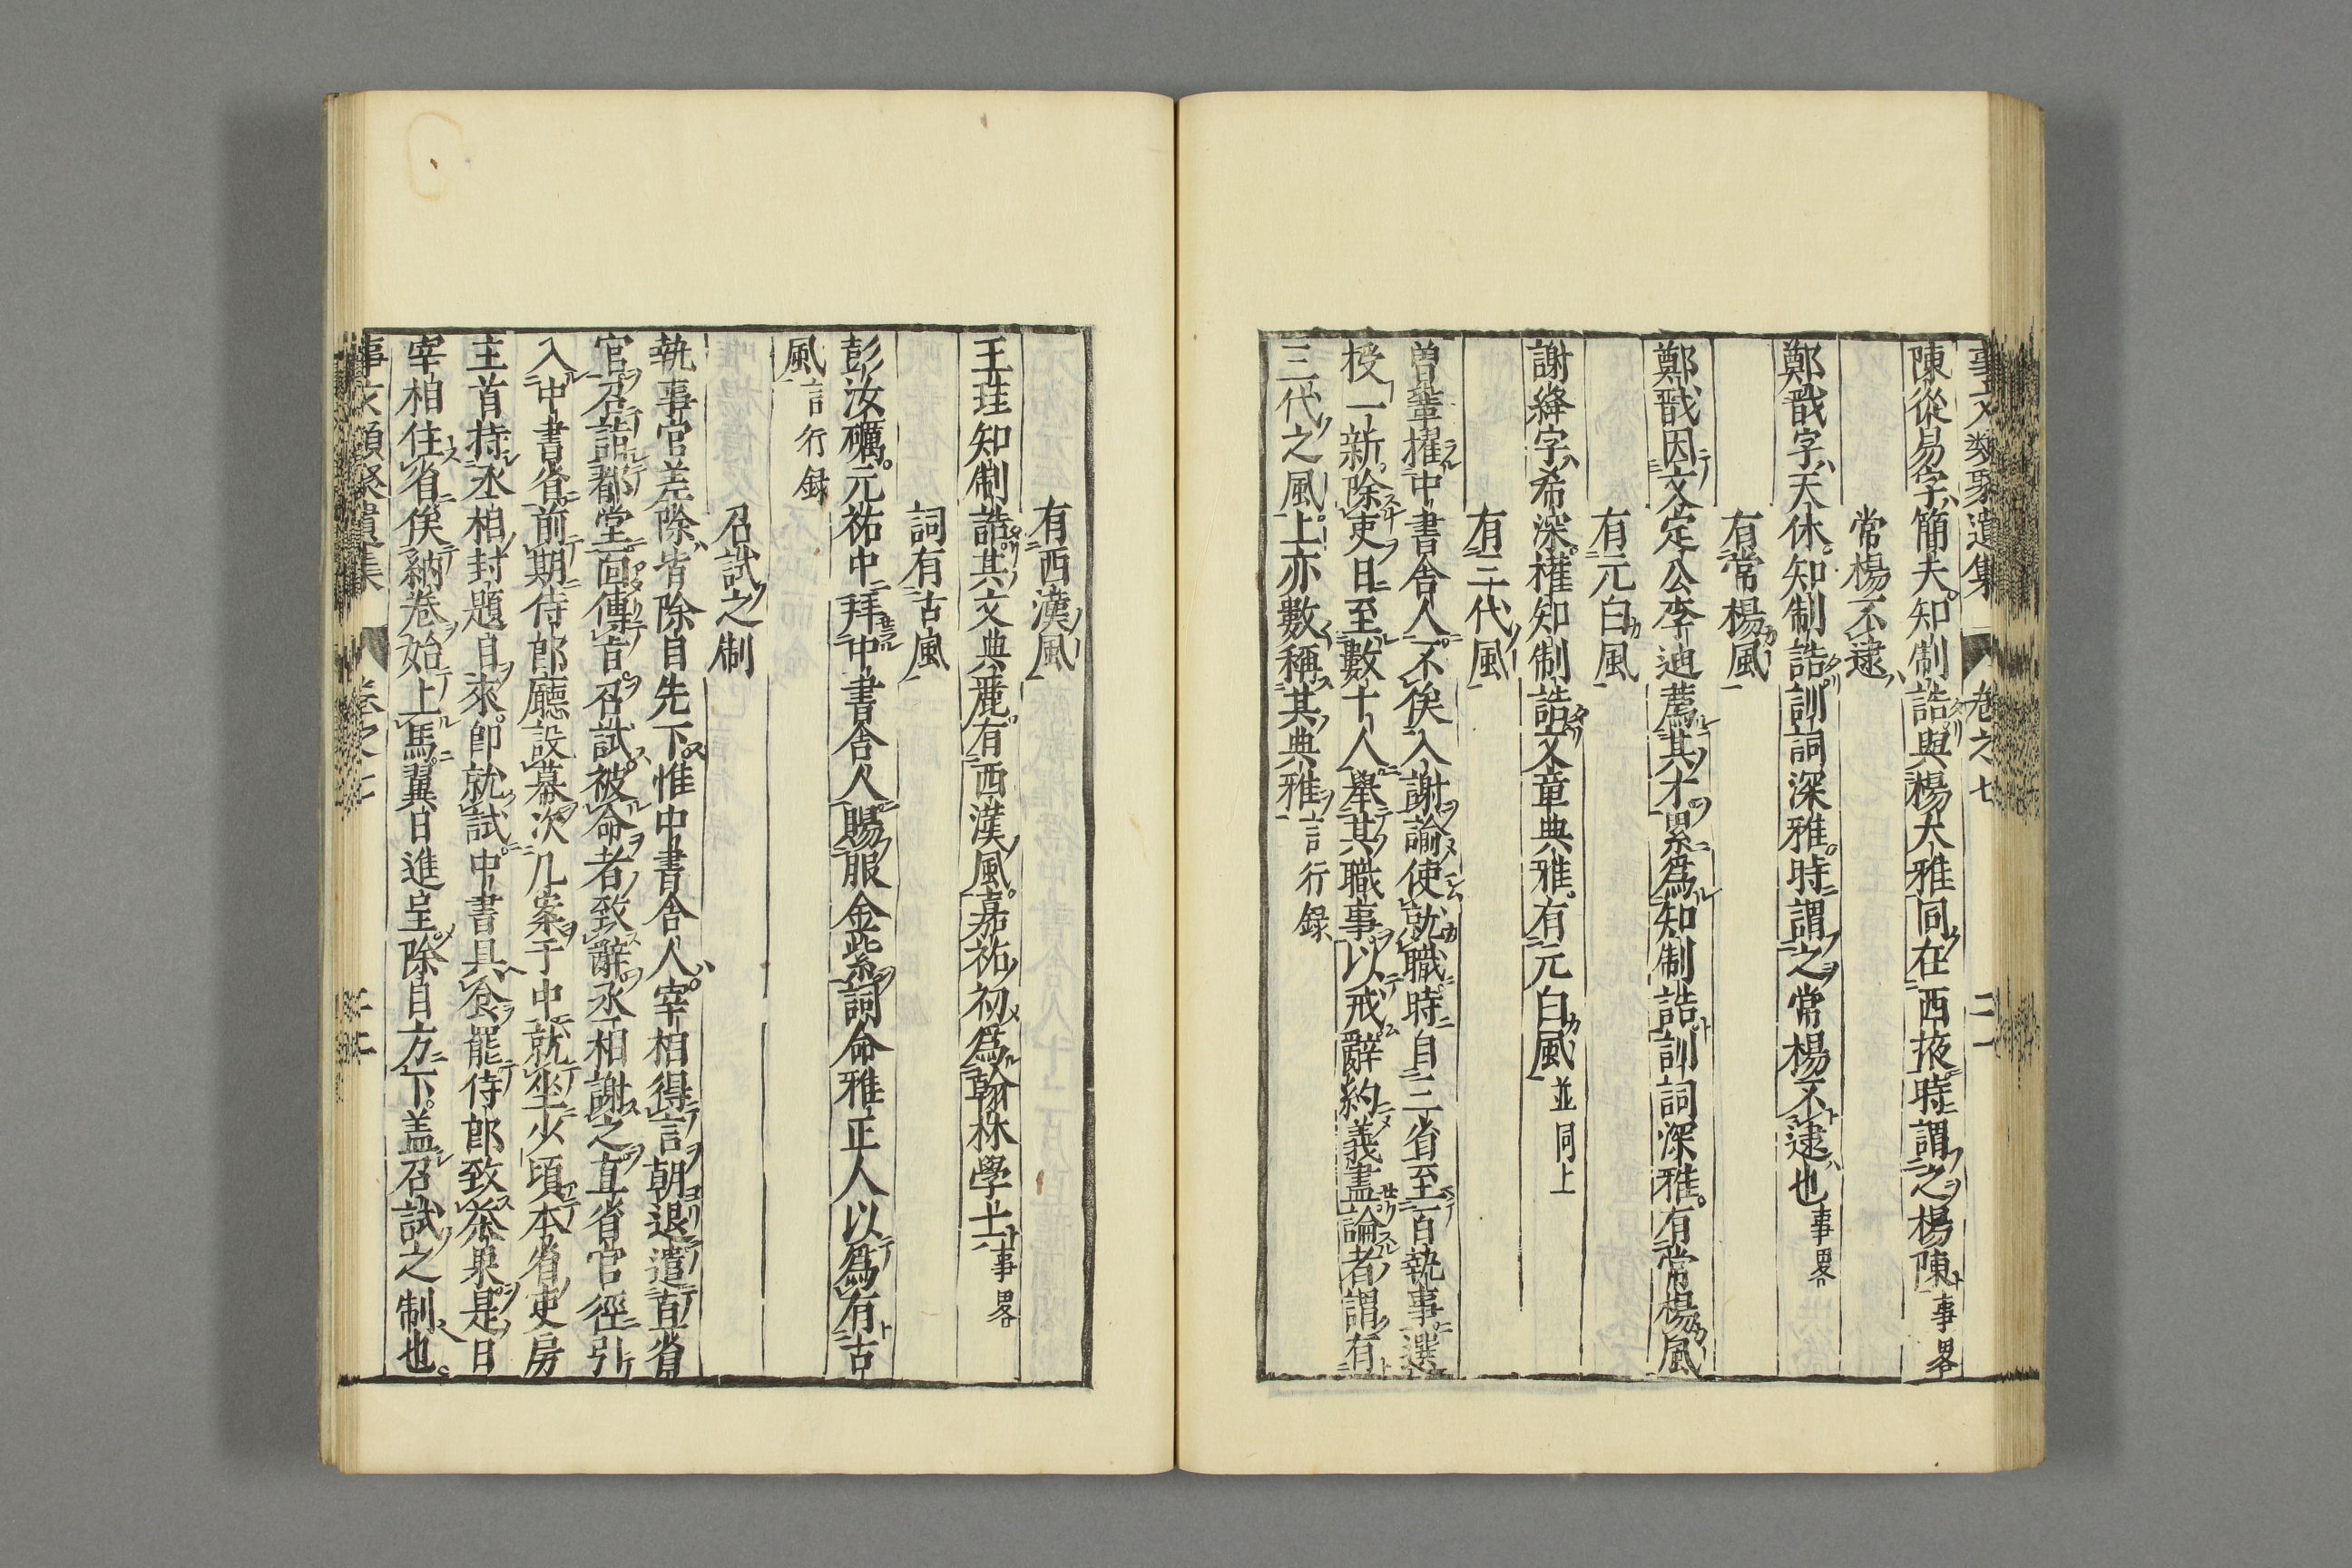 事文類聚遺集 卷之七
陳從易字簡夫知制誥與楊大雅同在西掖時謂之楊陳事畧
常楊不逮
鄭戩字天休知制誥訓詞深雅時謂之常楊不逮也事畧
有常楊風
鄭戩因文定公李迪薦其才累爲知制誥訓詞深雅有常楊風
有元白風
謝絳字希深權知制誥文章典雅有元白風並同上
有三代風
曽鞏擢中書舎人不俟入謝諭使就職時自三省至百執事選
授一新除吏日至數十人舉其職事以戒辭約義盡論者謂有
三代之風上亦數稱其典雅言行録
有西漢風
王珪知制誥其文典麗有西漢風嘉祐初爲翰林學士事畧
詞有古風
彭汝礪元祐中拜中書舎人賜服金紫詞命雅正人以爲有古
風言行録
召試之制
執事官差除皆除自先下惟中書舎人宰相得言朝退遣直省
官召詣都堂面傳旨召試被命者致辭丞相謝之直省官徑引
入中書省前期侍郎廳設幕次几案于中就坐少頃本省吏房
主首持丞相封題自來即就試中書具食罷侍郎致茶果是日
宰相住省俟納卷始上馬翼日進呈除自方下盖召試之制也
事文類聚遺集 卷之七